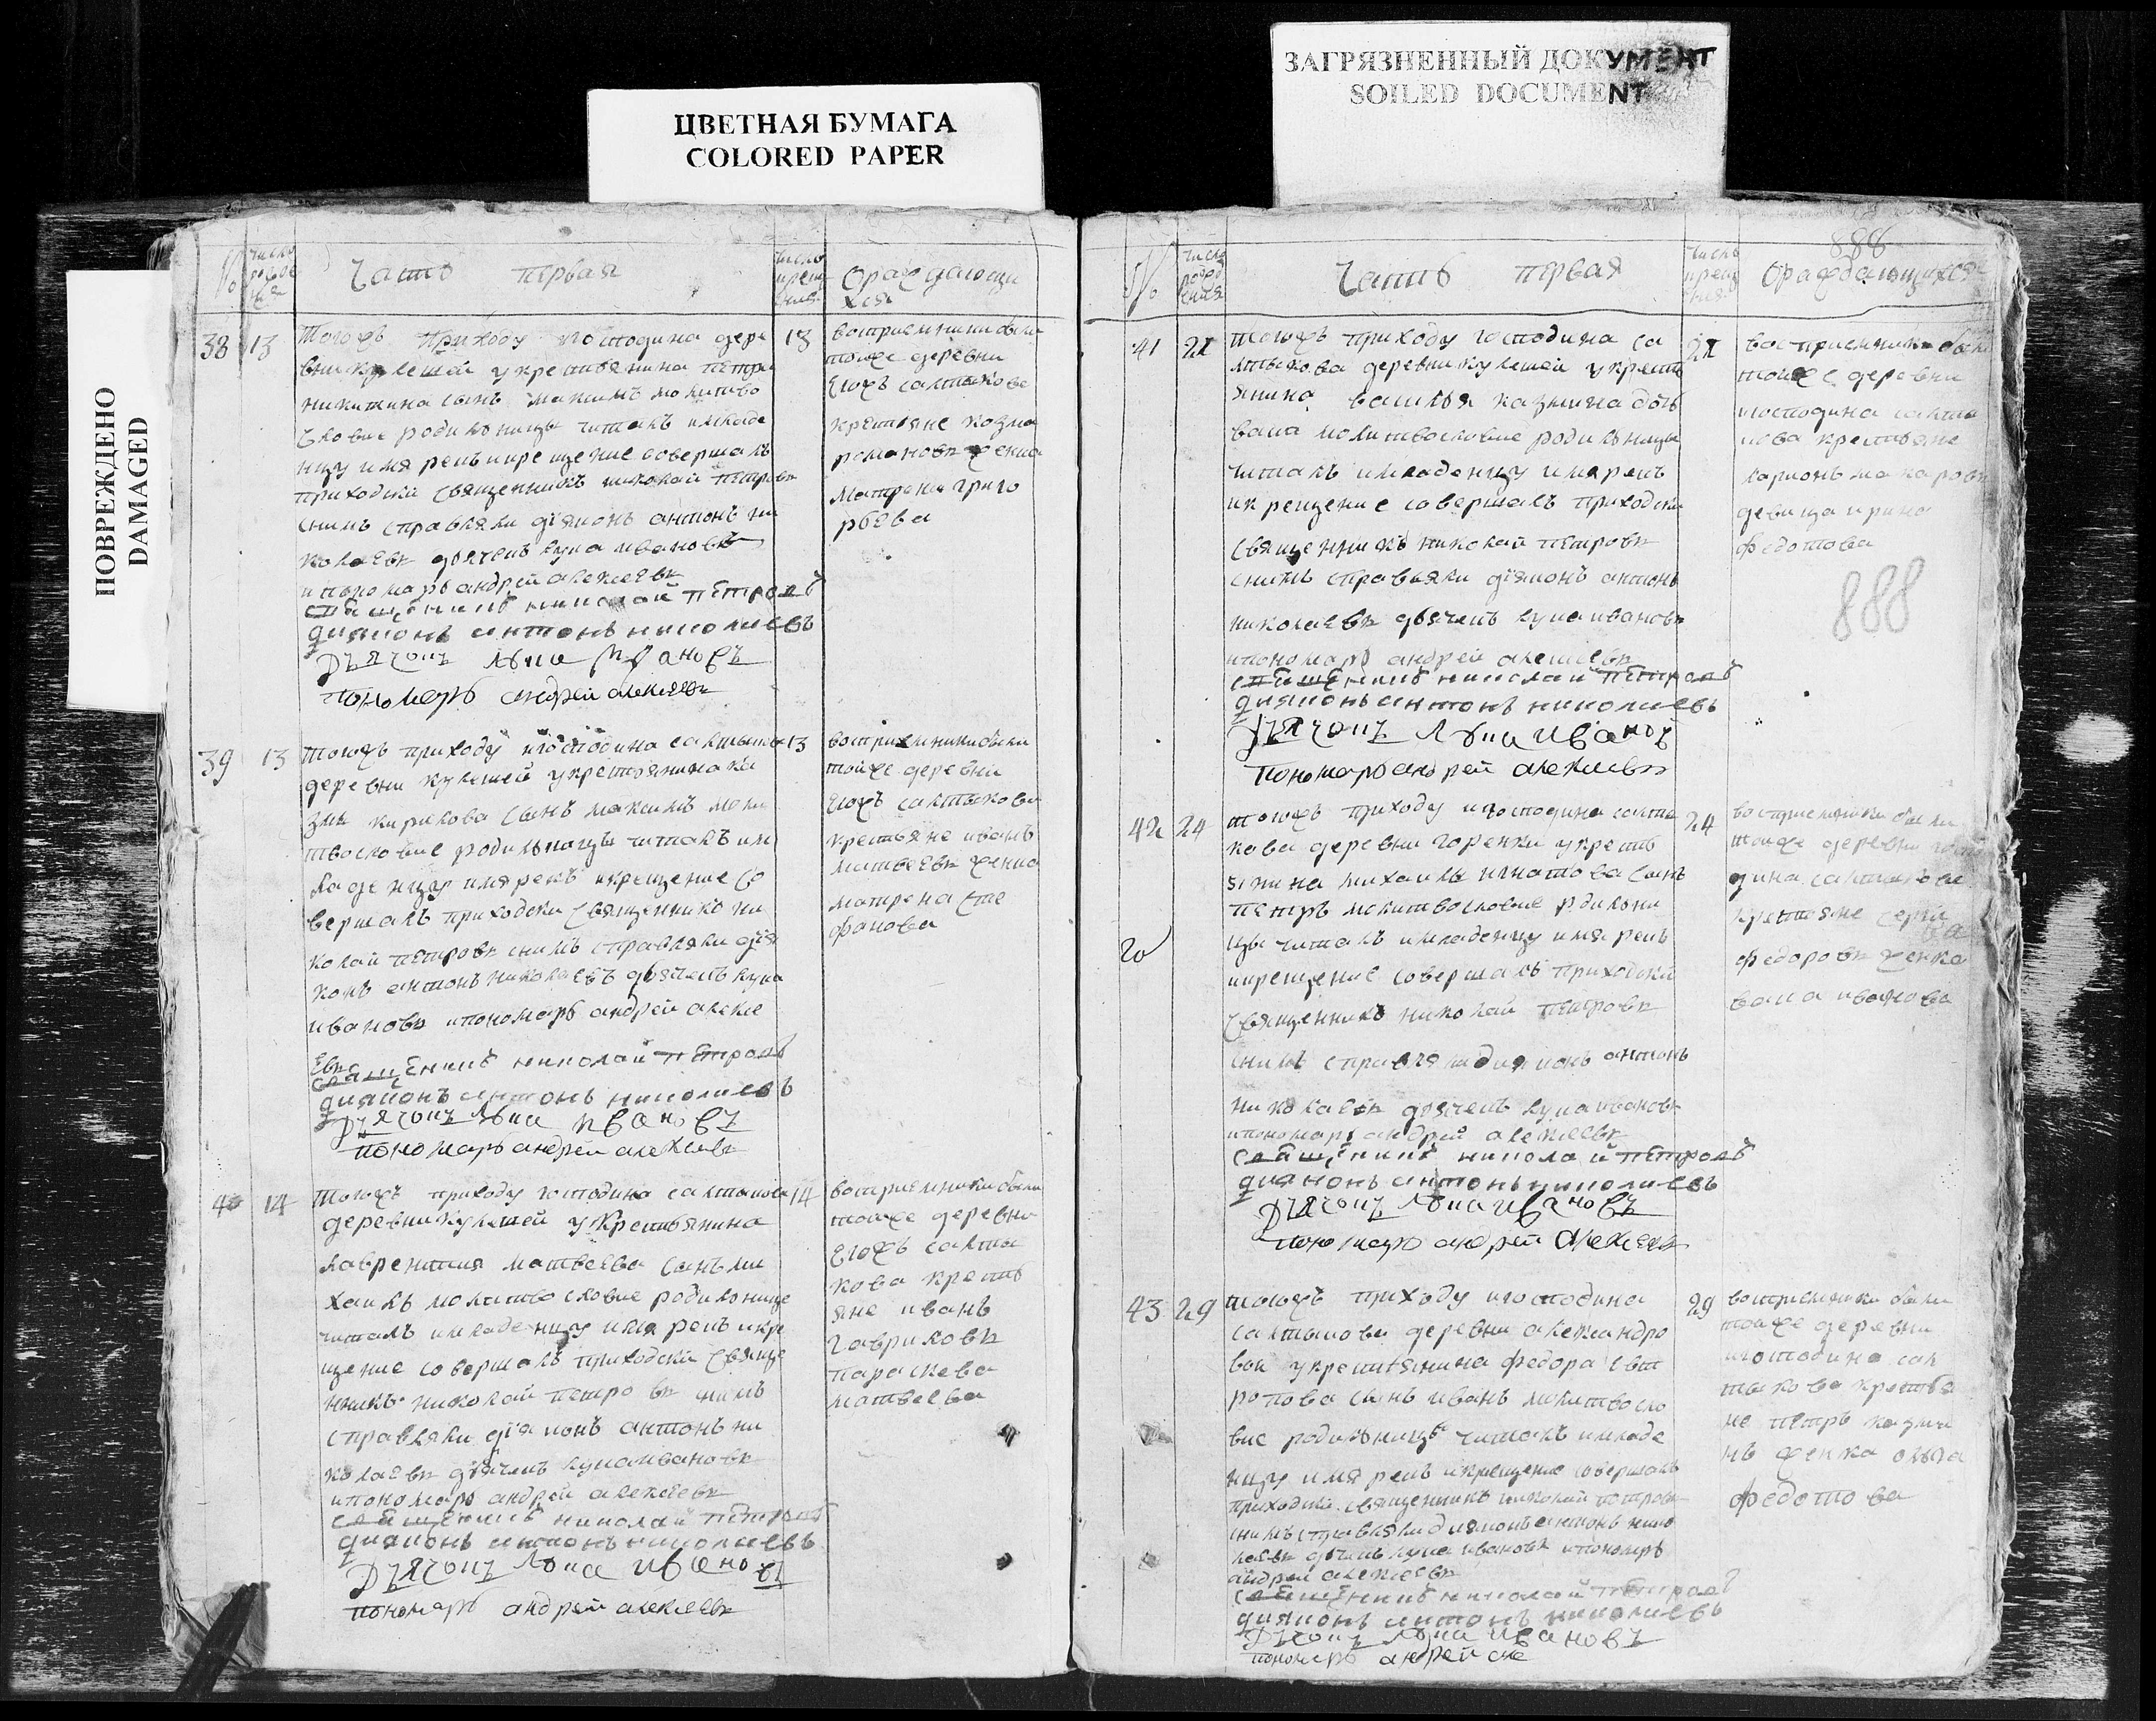 ЗАГРЯЗНЕННЫЙ ДОКУМЕНТ
SOILED DOCUMENT
ЦВЕТНАЯ БУМАГА
COLORED PAPER
ПОВРЕЖДЕНО
DAMAGED
№
число рожде
часть первая
число крещ
ораждающи
хся
38 13
тогожъ приходу господина дере
вни кулешей укрестьянина петра
никитина сынъ максимъ молитво
словие родилницы читалъ имладе
нцу имя рекъ икрещение совершалъ
приходски священникъ николай петровъ
снимъ справляли дїяконъ антонъ ни
колаевъ дьячекъ лука ивановъ
ипономарь андрей алекѣевъ
священникъ николай петровъ
дияконъ антонъ николаевъ
дъячокъ лука ивановъ
пономарь андрей алексѣевъ
13
восприемники были
тоиже деревни
егожъ салтыкова
крестьяне козма
романовъ женка
матрена григо
рьева
39 13
тогожъ приходу игосподина салтыкова
деревни кулешей укрестьянина ка
змы кирилова сынъ максимъ моли
твословие родильницы читалъ им
ладенцу имярекъ икрещение со
вершалъ приходски священникъ ни
колай петровъ снимъ справляли дїя
конъ антонъ николаевъ дьячекъ лука
ивановъ ипономарь андрей алексе
евъ
священникъ николай петровъ
дияконъ антонъ николаевъ
дъячокъ лука ивановъ
пономарь андрей алексѣевъ
13
восприемники были
тойже деревни
егожъ салтыкова
крестьяне иванъ
матвеевъ женка
матрена сте
фанова
40 14
тогожъ приходу господина салтыкова
деревни кулешей укрестьянина
лаврентия матвеева сынъ ми
хаилъ молитвословие родильнице
читалъ имладенцу имя рекъ икре
щение совершалъ приходски свяще
нникъ николай петровъ снимъ
справляли дїяконъ антонъ ни
колаевъ дьячекъ лука ивановъ
ипономарь андрей алексеевъ
священникъ николай петровъ
дияконъ антонъ николаевъ
дъячокъ лука ивановъ
пономарь андрей алексѣевъ
14
восприемники были
тоиже деревни
егожъ салты
кова кресть
яне иванъ
гавриловъ
параскева
матвеева
888
№
часть первая
ораждающихся
41
тогожъ приходу господина са
лтыкова деревни кулешей укресть
янина василья казмина дочь
молитвословие родильницы
читалъ имладенцу имярекъ
икрещение совершалъ приходски
священникъ николай петровъ
снимъ справляли дїяконъ антонъ
николаевъ дьячекъ лука ивановъ
ипономарь андрей алексеевъ
священникъ николай петровъ
дияконъ антонъ николаевъ
дъячокъ лука ивановъ
пономарь андрей алексѣевъ
восприемники были
тоиже деревни
игосподина салты
кова крестьяне
ларионъ макаровъ
девица ирина
федотова
888
42 24
тогожъ приходу игосподина салты
кова деревни горенки укресть
янина михаилы игнатова сынъ
петръ молитвословие родильни
цы читалъ имладенцу имя рекъ
икрещение совершалъ приходски
священникъ николай петровъ
снимъ справляли дияконъ антонъ
николаевъ дьячекъ лука ивановъ
ипономарь андрей алексеевъ
священникъ николай петровъ
дияконъ антонъ николаевъ
дъячокъ лука ивановъ
пономарь андрей алексѣевъ
24
восприемники были
тоиже деревни госпо
дина салтыкова
крестьяне
федоровъ женка
ивановa
43 29
тогожъ приходу игосподина
салтыкова деревни александро
вки укрестьянина федора евт
ропова сынъ иванъ молитвосло
вие родильницѣ читалъ имладе
нцу имя рекъ икрещение совершалъ
приходски священникъ николай петровъ
снимъ справляли дияконъ антонъ нико
лаевъ дьячекъ лука ивановъ ипономарь
андрей алексеевъ
священникъ николай петровъ
дияконъ антонъ николаевъ
дьячокъ лука ивановъ
пономарь андрей але
29
восприемники были
тоиже деревни
игосподина сал
тыкова крестья
не петръ казми
нъ женка
федотова